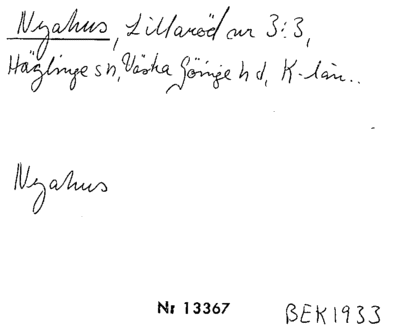 Nyahus, Lillaröd nr 3:3,
Häglinge sn, Västra Göinge hd, K-län..
Nyahus
Nr 13367 BEK1933